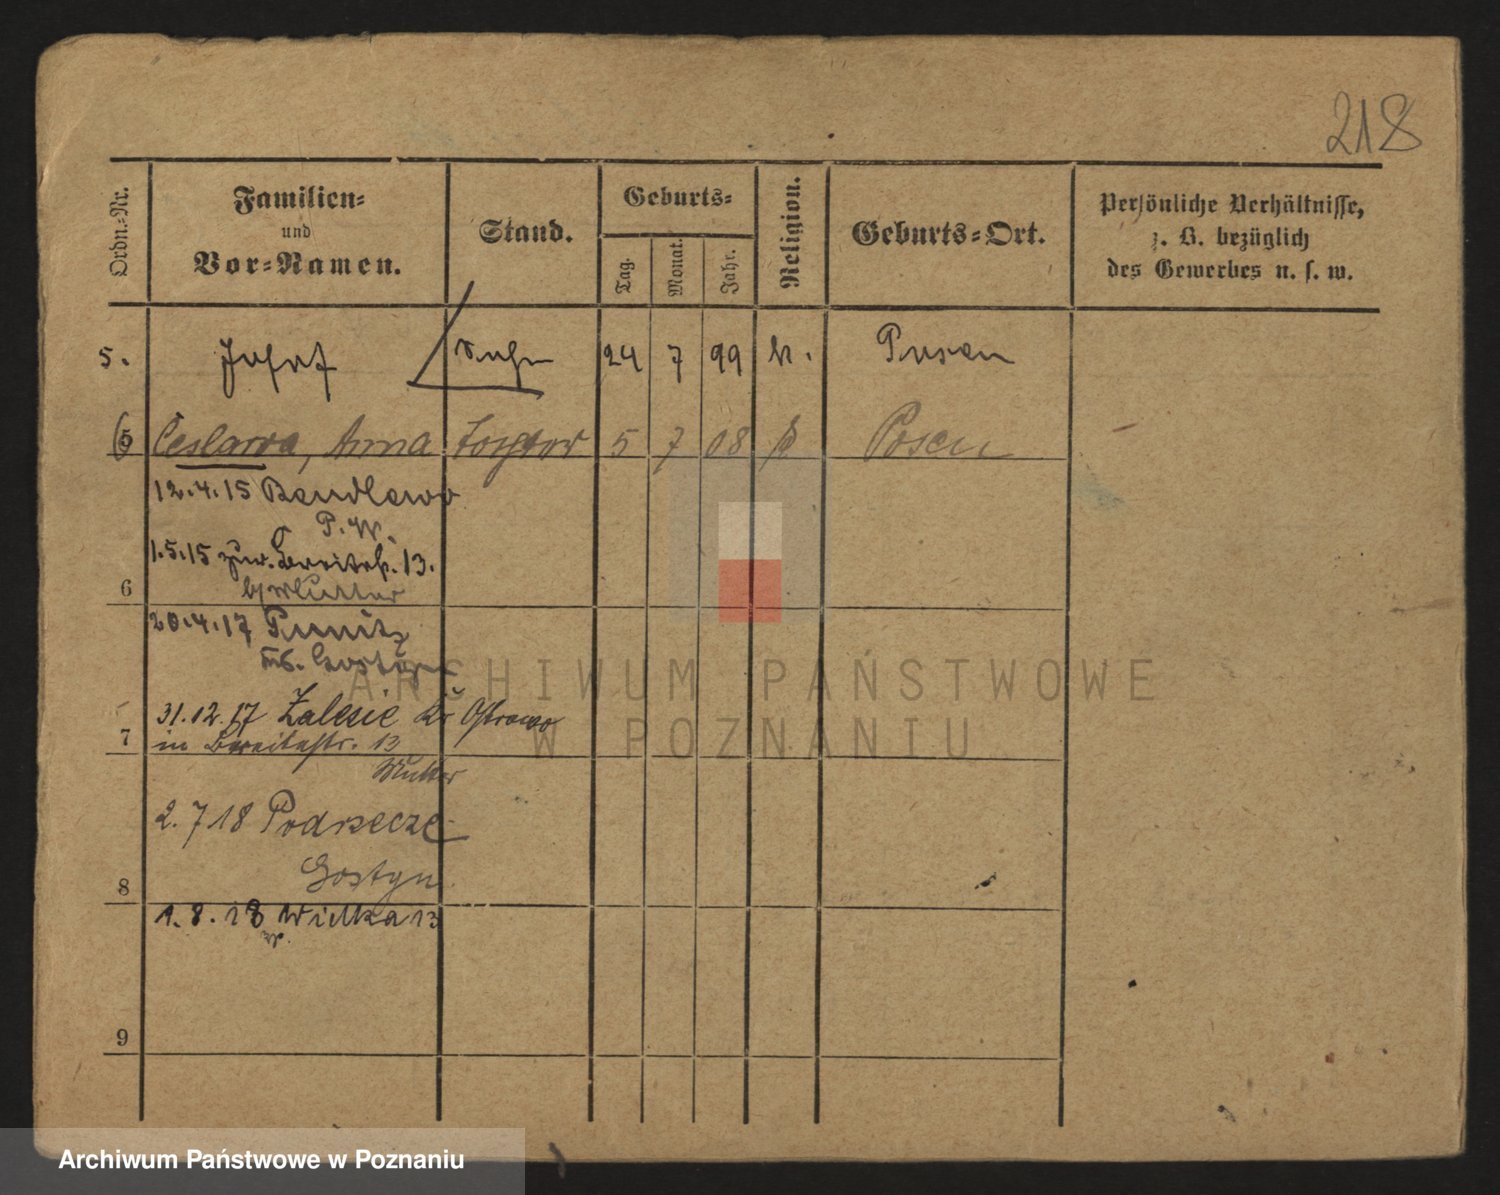 218
Ordn.-Nr.
Familien-
und
Vor-Namen.
Stand.
Geburts-
Tag.
Monat.
Jahr.
Religion.
Geburts-Ort.
Persönliche Verhältnisse,
z. B. bezüglich
des Gewerbes u. s. w.
5. Josef Sohn 24 7 99 k. Posen
6 Ceslawa, Anna Tochter 5 7 08 k Posen
12.4.15 Bendlewo
P.W.
1.5.15 zur. Breitestr. 13.
b/ Mutter
6
20.4.17 Punitz
Gostyn
31.12.17 Zalesie Kr Ostrowo
7
in Breitestr. 13
Mutter
2.7 18 Podrzecze
Gostyn
8
1.8.18 Wielka 13
9
ARCHIWUM PAŃSTWOWE
W POZNANIU
Archiwum Państwowe w Poznaniu